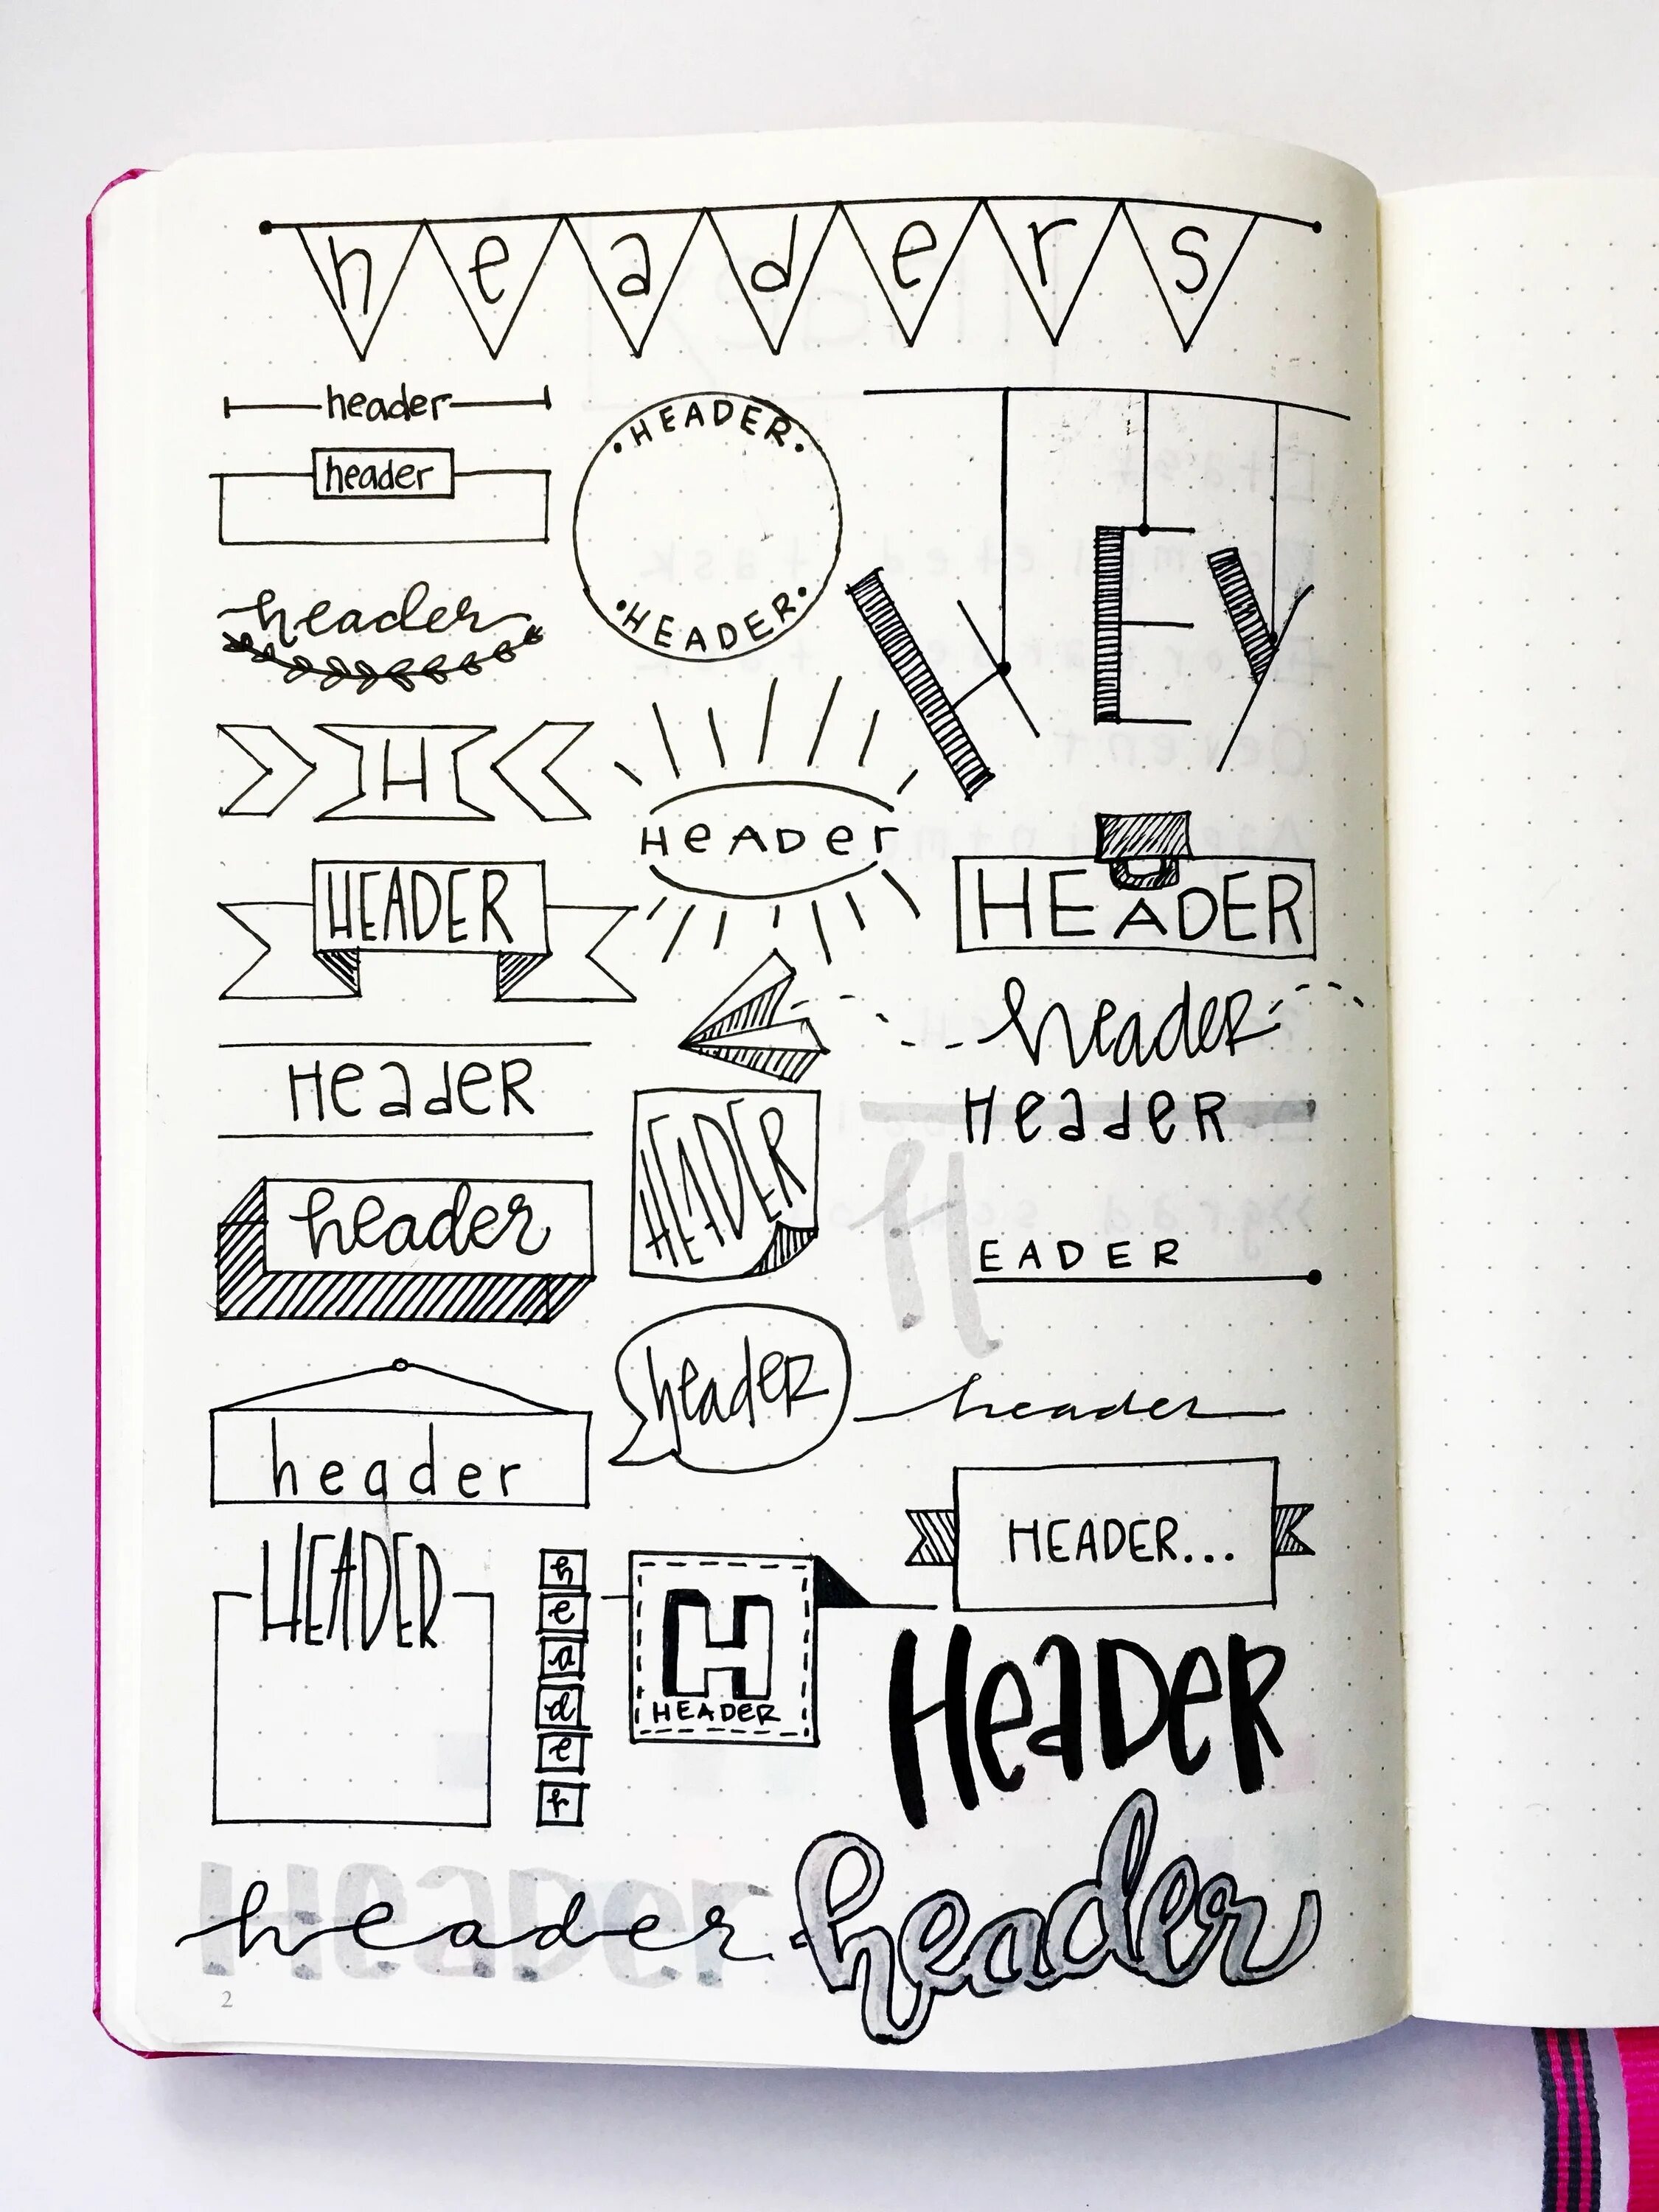 headers
header
header
header
H
HEADER
Header
header
header
HEADER
header
HEADER
HEADER
HEADER
HEADER
header
H
HEADER
HEY
HEADER
header
Header
H EADER
header
HEADER...
Header
header
header
Header
2